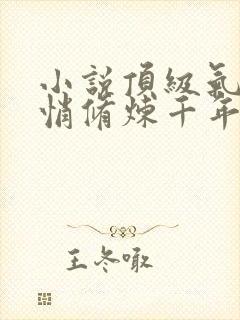 小說頂級氣
悄脩煉千年
王冬噉